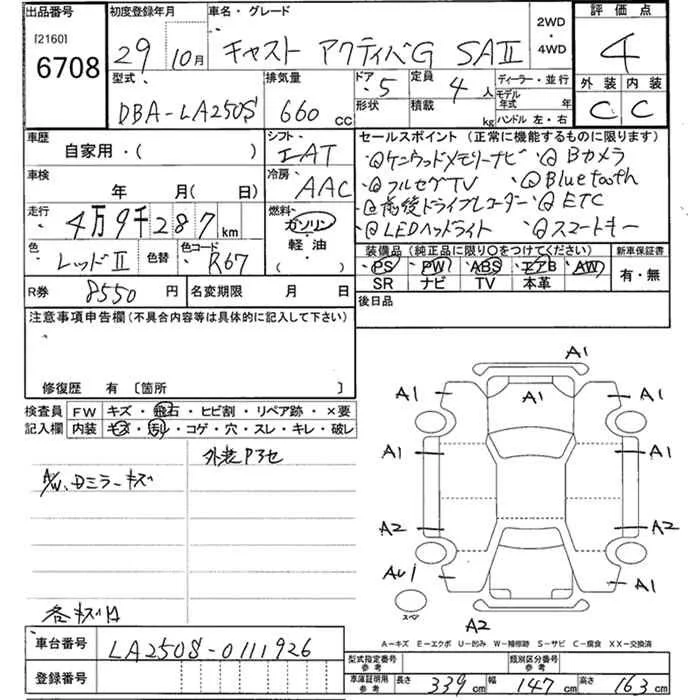 出品番号 初度登録年月 車名・グレード 2WD・4WD 評価点
[2160]
6708 29 10月 キャスト アクティバG SAⅡ 4
型式 排気量 ドア 5 定員 4人 ディーラー・並行 外装 内装
DBA-LA250S 660 cc 形状 積載 kg モデル年式 年 C C
ハンドル 左・右
車歴 自家用・( ) シフト IAT セールスポイント (正常に機能するものに限ります)
・@ケンウッドメモリーナビ ・@Bカメラ
車検 年 月(日) 冷房 AAC ・@フルセグTV ・@Bluetooth
走行 4万9千287 km 燃料 ガソリン・軽油 ・@前後ドライブレコーダー ・@ETC
・@LEDヘッドライト ・@スマートキー
色 レッドⅡ 色替 色コード R67 装備品 (純正品に限り○をつけてください) 新車保証書
PS PW ABS エアB AW 有・無
SR ナビ TV 本革
R券 8550 円 名変期限 月 日 後日品
注意事項申告欄(不具合内容等は具体的に記入して下さい)
修復歴 有 〔箇所 〕
検査員 FW キズ・飛石・ヒビ割・リペア跡・×要
記入欄 内装 キズ・汚レ・コゲ・穴・スレ・キレ・破レ
A/W、Dミラーキズ
A1
A1 A1 A1
A1 A1
A2 A2
AU1 A1
スペア
A2
A-キズ E-エクボ U-凹み W-補修跡 S-サビ C-腐食 XX-交換済
車台番号 LA250S-0111926
型式指定番号 参考 類別区分番号 参考
登録番号 車庫証明用 参考 長さ 339 cm 幅 147 cm 高さ 163 cm